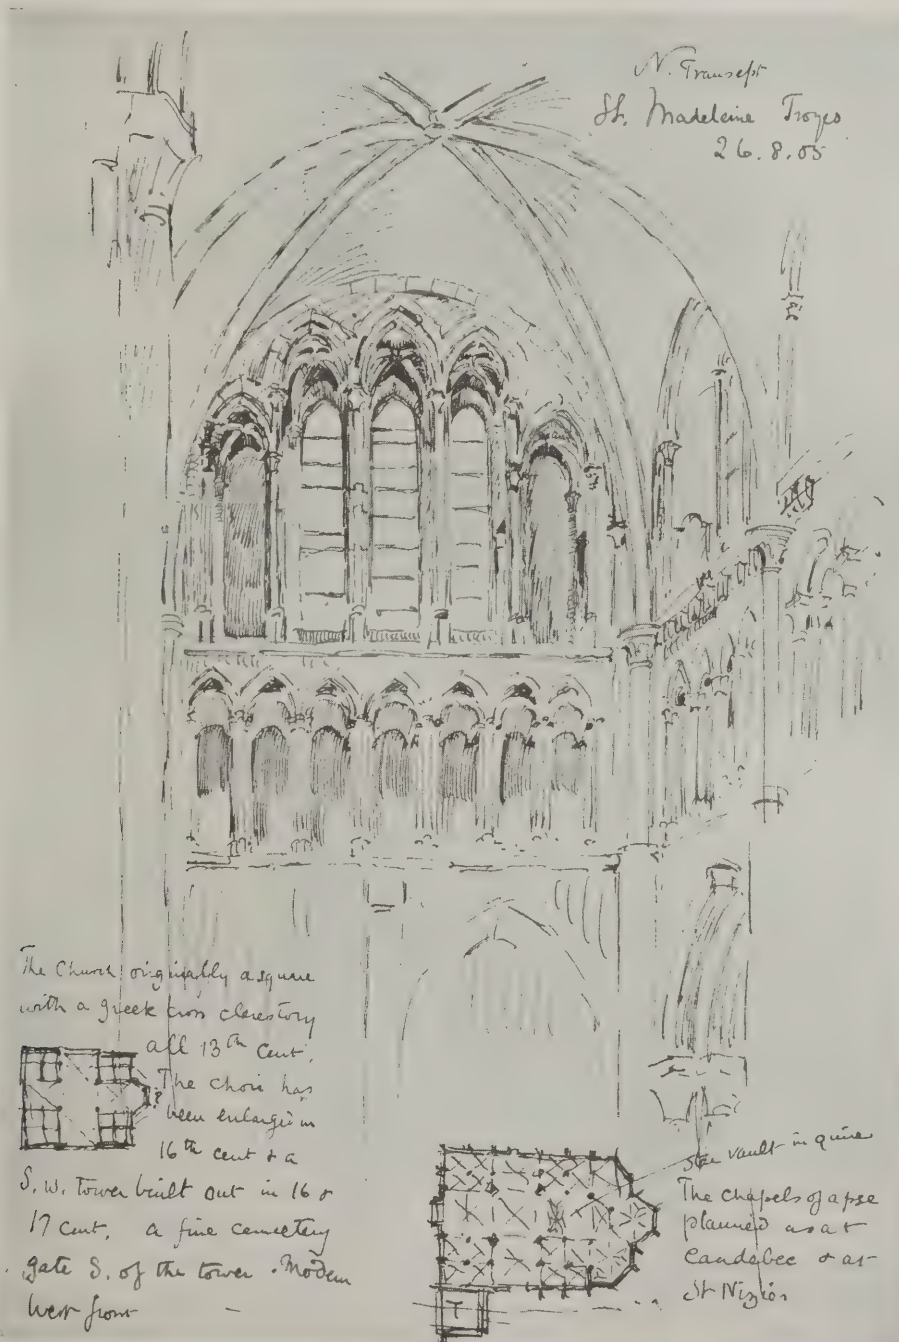 N. Transept
St. Madeleine Troyes
26.8.05
The Church originally a square
with a greek cross clerestory
all 13th cent.
The choir has
been enlarged in
16th cent & a
S. W. Tower built out in 16 &
17 cent. a fine cemetery
gate S. of the tower. Modern
West front
?
T
Star vault in quire
The chapels of apse
planned as at
Caudebec & at
St Nizier